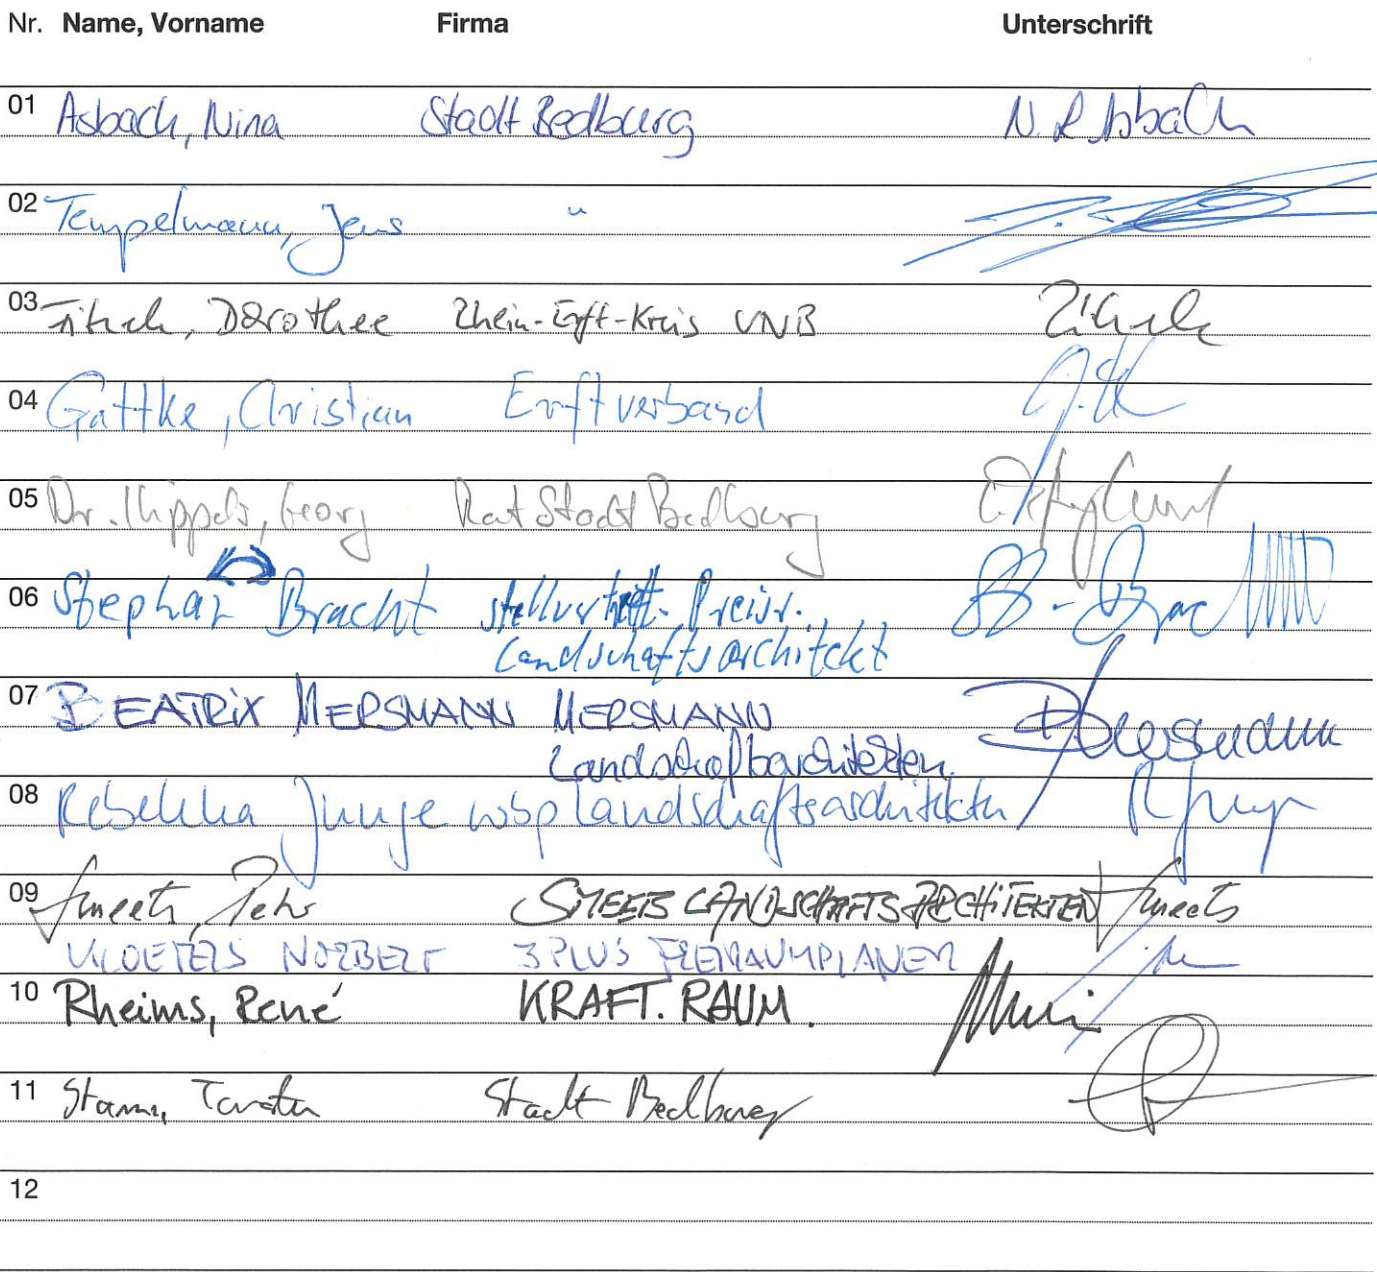 Nr. Name, Vorname Firma Unterschrift
01 Asbach, Nina Stadt Bedburg N. R. Asbach
02 Tempelmann, Jens "
03 Dorothee Rhein-Erft-Kreis UNB
04 Gattke, Christian Erftverband
05 Dr. Kippels, Georg Rat Stadt Bedburg
06 Stephan Bracht stellvertret. Preisr.
Landschaftsarchitekt
07 BEATRIX MERSMANN MERSMANN
Landschaftsarchitekten
08 Rebekka Junge wbp landschaftsarchitekten R. Junge
09 Smeets, Peter SMEETS LANDSCHAFTSARCHITEKTEN Smeets
KLOETERS NORBERT 3PLUS FREIRAUMPLANER
10 Rheims, René KRAFT. RAUM.
11 Stamm, Torsten Stadt Bedburg
12